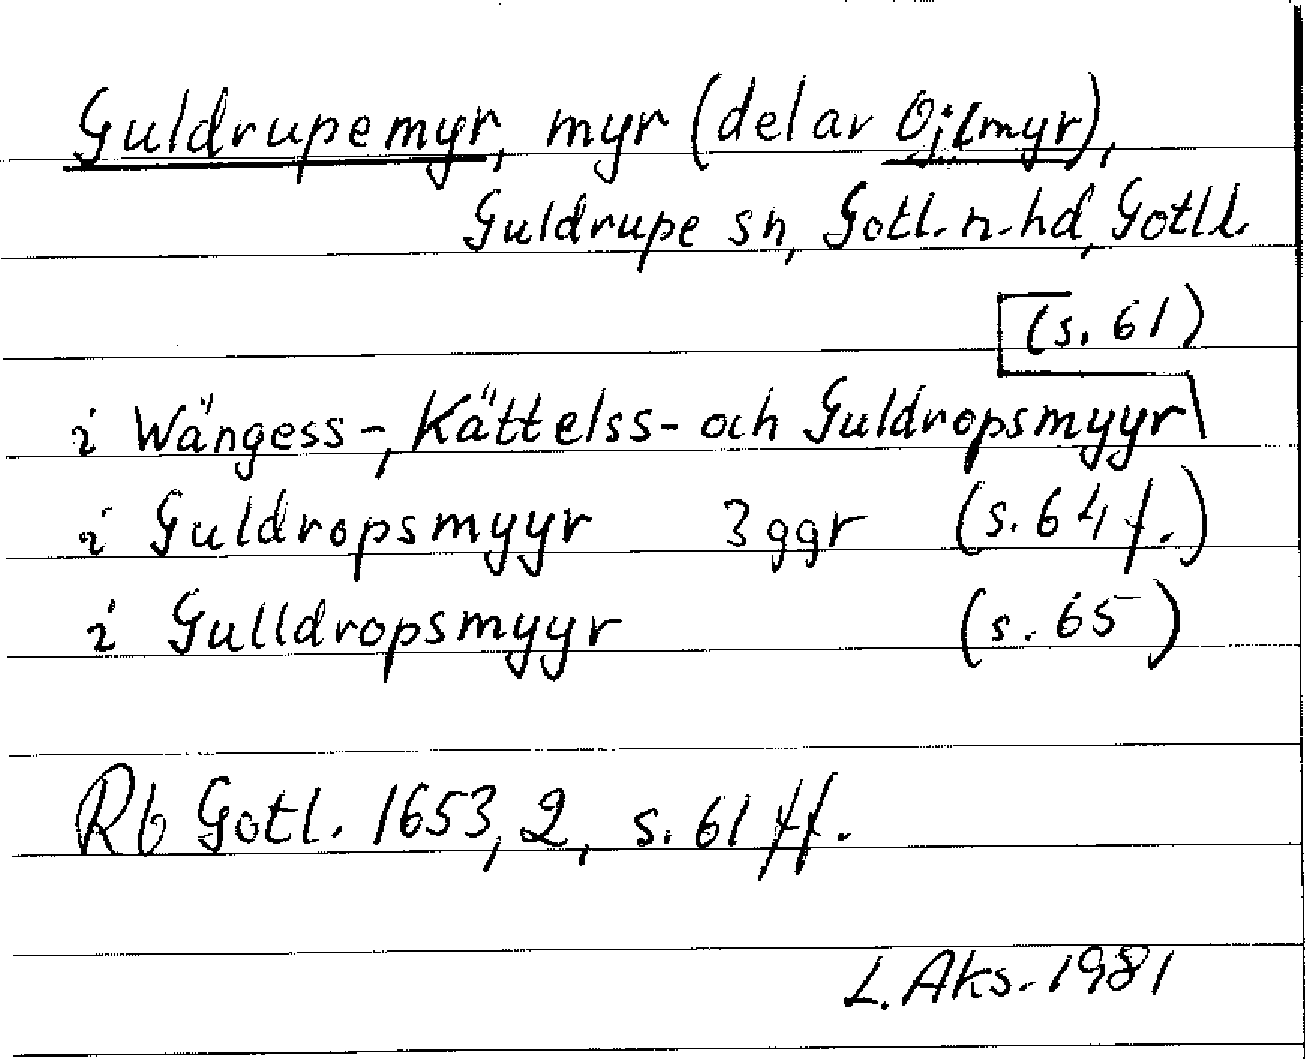 Guldrupemyr, myr (del av Ojlmyr),
Guldrupe sn, Gotl. n. hd, Gotl l.
(s. 61)
i Wängess-, Kättelss- och Guldropsmyyr
i Guldropsmyyr 3 ggr (s. 64 f.)
i Gulldropsmyyr (s. 65)
Rb Gotl. 1653, 2, s. 61 ff.
L. Aks. 1981